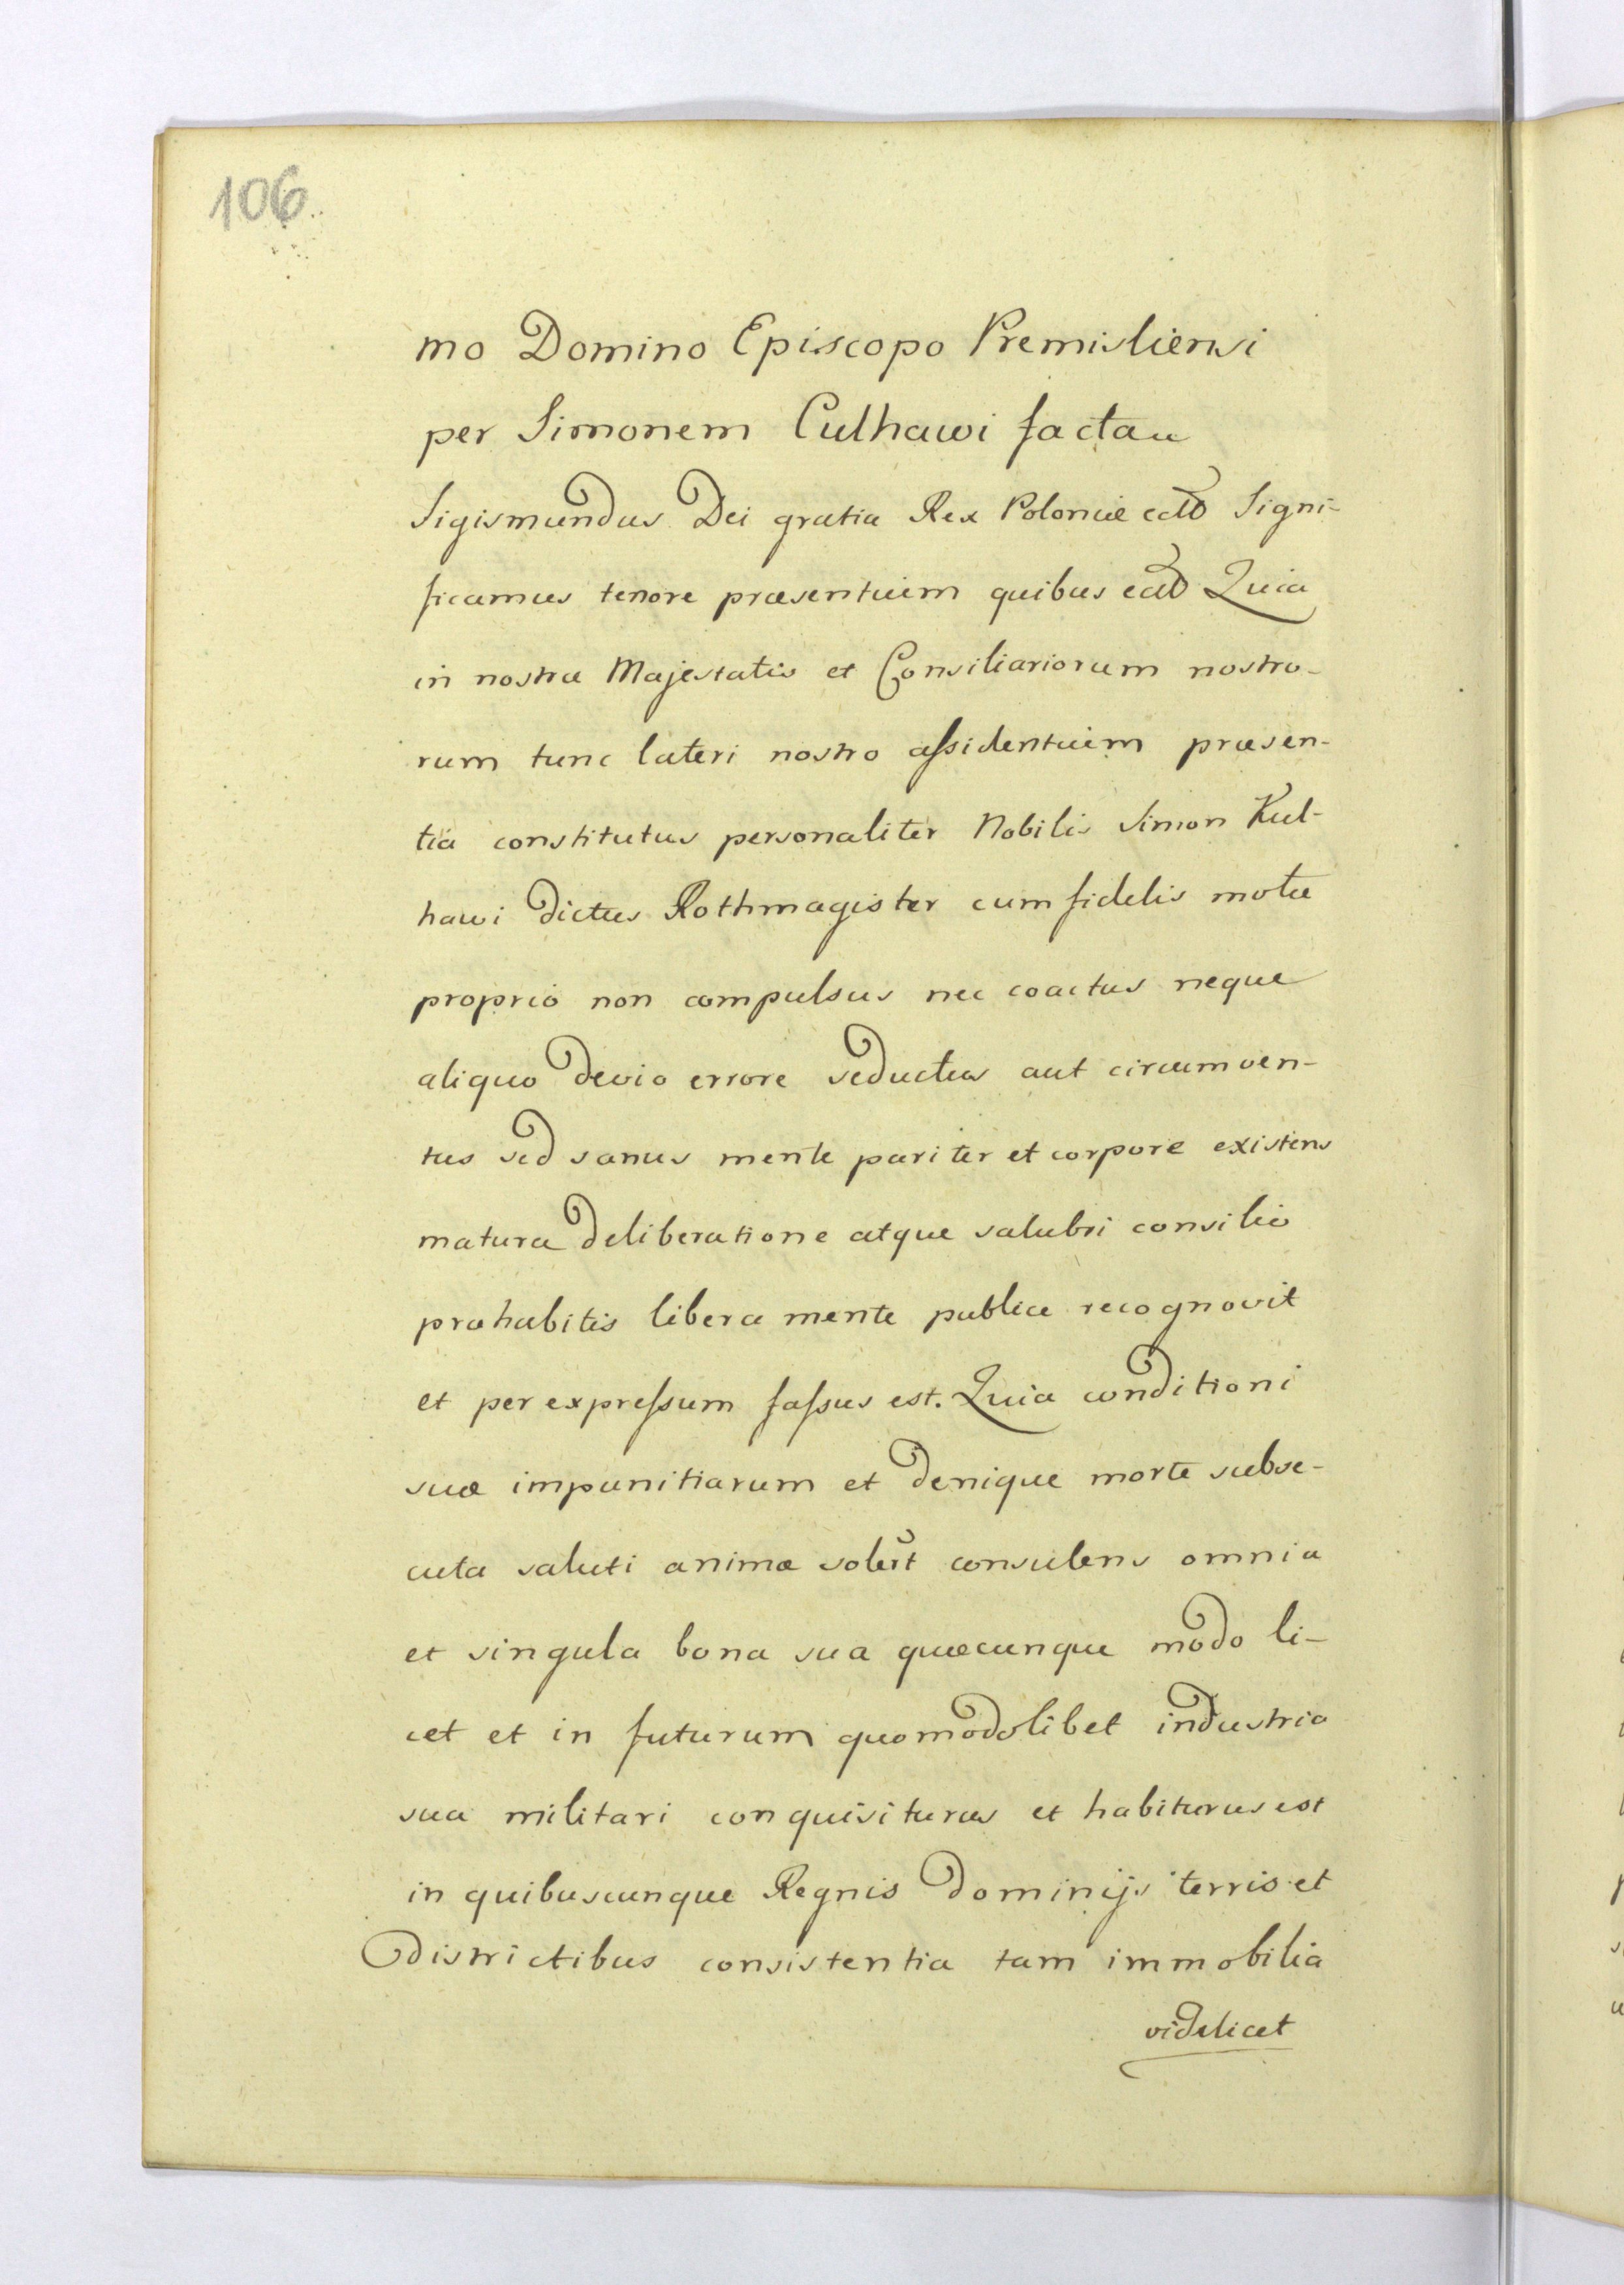 106.
mo Domino Episcopo Premisliensi
per Simonem Culhawi facta
Sigismundus Dei gratia Rex Poloniæ Signi-
ficamus tenore præsentium quibus Quia
in nostra Majestatis et Consiliariorum nostro-
rum tunc lateri nostro assidentium præsen-
tia constitutus personaliter Nobilis Simon Kul-
hawi dictus Rothmagister cum fidelis motu
proprio non compulsus nec coactus neque
aliquo devio errore seductus aut circumven-
tus sed sanus mente pariter et corpore existens
matura deliberatione atque salubri consilio
præhabitis libera mente publice recognovit
et per expressum fassus est. Quia conditioni
suæ impunitiarum et denique morte subse-
cuta saluti animæ consulens omnia
et singula bona sua quæcunque modo li-
cet et in futurum quomodolibet industria
sua militari conquisiturus et habiturus est
in quibuscunque Regnis dominijs terris et
districtibus consistentia tam immobilia
videlicet